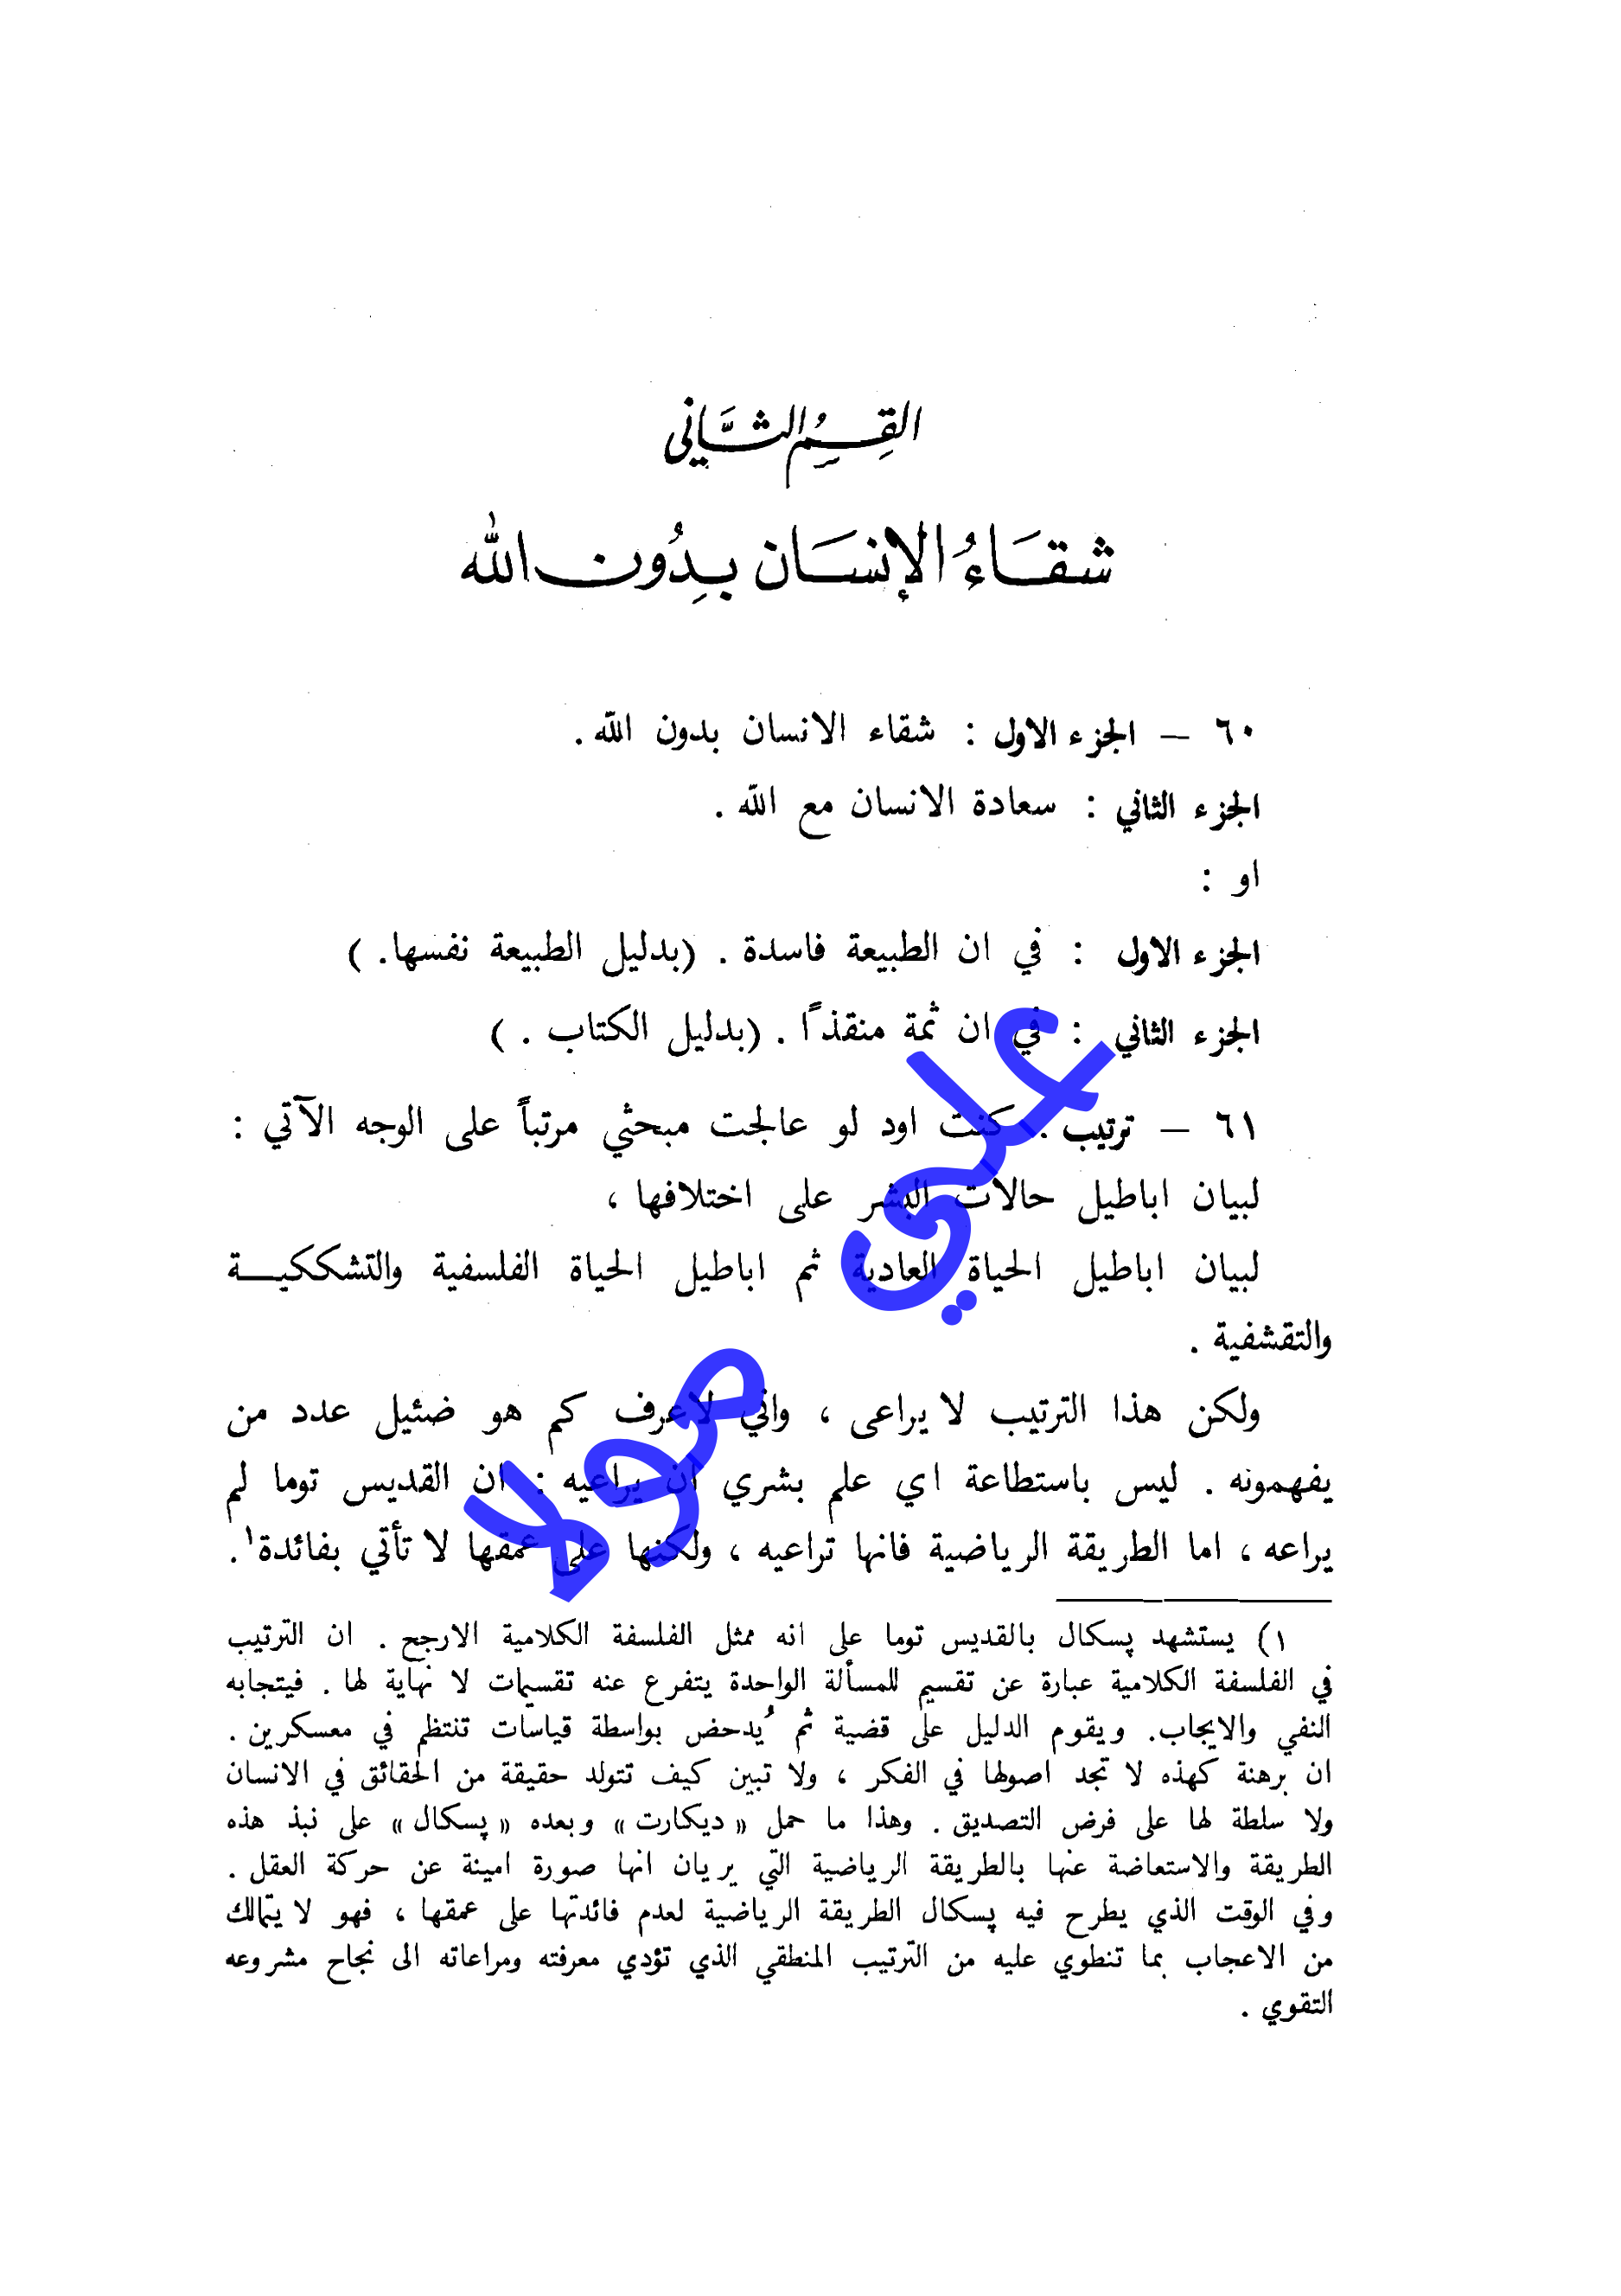 القِسْمُ الثَّاني
شقَاءُ الإنسَان بِدُون الله
٦٠ — الجزء الاول : شقاء الانسان بدون الله .
الجزء الثاني : سعادة الانسان مع الله .
او :
الجزء الاول : في ان الطبيعة فاسدة . (بدليل الطبيعة نفسها . )
الجزء الثاني : في ان ثمة منقذاً . (بدليل الكتاب . )
٦١ — ترتيب . كنت اود لو عالجت مبحثي مرتباً على الوجه الآتي :
لبيان اباطيل حالات البشر على اختلافها ،
لبيان اباطيل الحياة العادية ثم اباطيل الحياة الفلسفية والتشككيــة
والتقشفية .
ولكن هذا الترتيب لا يراعى ، واني لاعرف كم هو ضئيل عدد من
يفهمونه . ليس باستطاعة اي علم بشري ان يراعيه : ان القديس توما لم
يراعه ، اما الطريقة الرياضية فانها تراعيه ، ولكنها على عمقها لا تأتي بفائدة¹ .
١) يستشهد پسكال بالقديس توما على انه ممثل الفلسفة الكلامية الارجح . ان الترتيب
في الفلسفة الكلامية عبارة عن تقسيم للمسألة الواحدة يتفرع عنه تقسيمات لا نهاية لها . فيتجابه
النفي والايجاب . ويقوم الدليل على قضية ثم يُدحض بواسطة قياسات تنتظم في معسكرين .
ان برهنة كهذه لا تجد اصولها في الفكر ، ولا تبين كيف تتولد حقيقة من الحقائق في الانسان
ولا سلطة لها على فرض التصديق . وهذا ما حمل « ديكارت » وبعده « پسكال » على نبذ هذه
الطريقة والاستعاضة عنها بالطريقة الرياضية التي يريان انها صورة امينة عن حركة العقل .
وفي الوقت الذي يطرح فيه پسكال الطريقة الرياضية لعدم فائدتها على عمقها ، فهو لا يتمالك
من الاعجاب بما تنطوي عليه من الترتيب المنطقي الذي تؤدي معرفته ومراعاته الى نجاح مشروعه
التقوي .
علي مولا